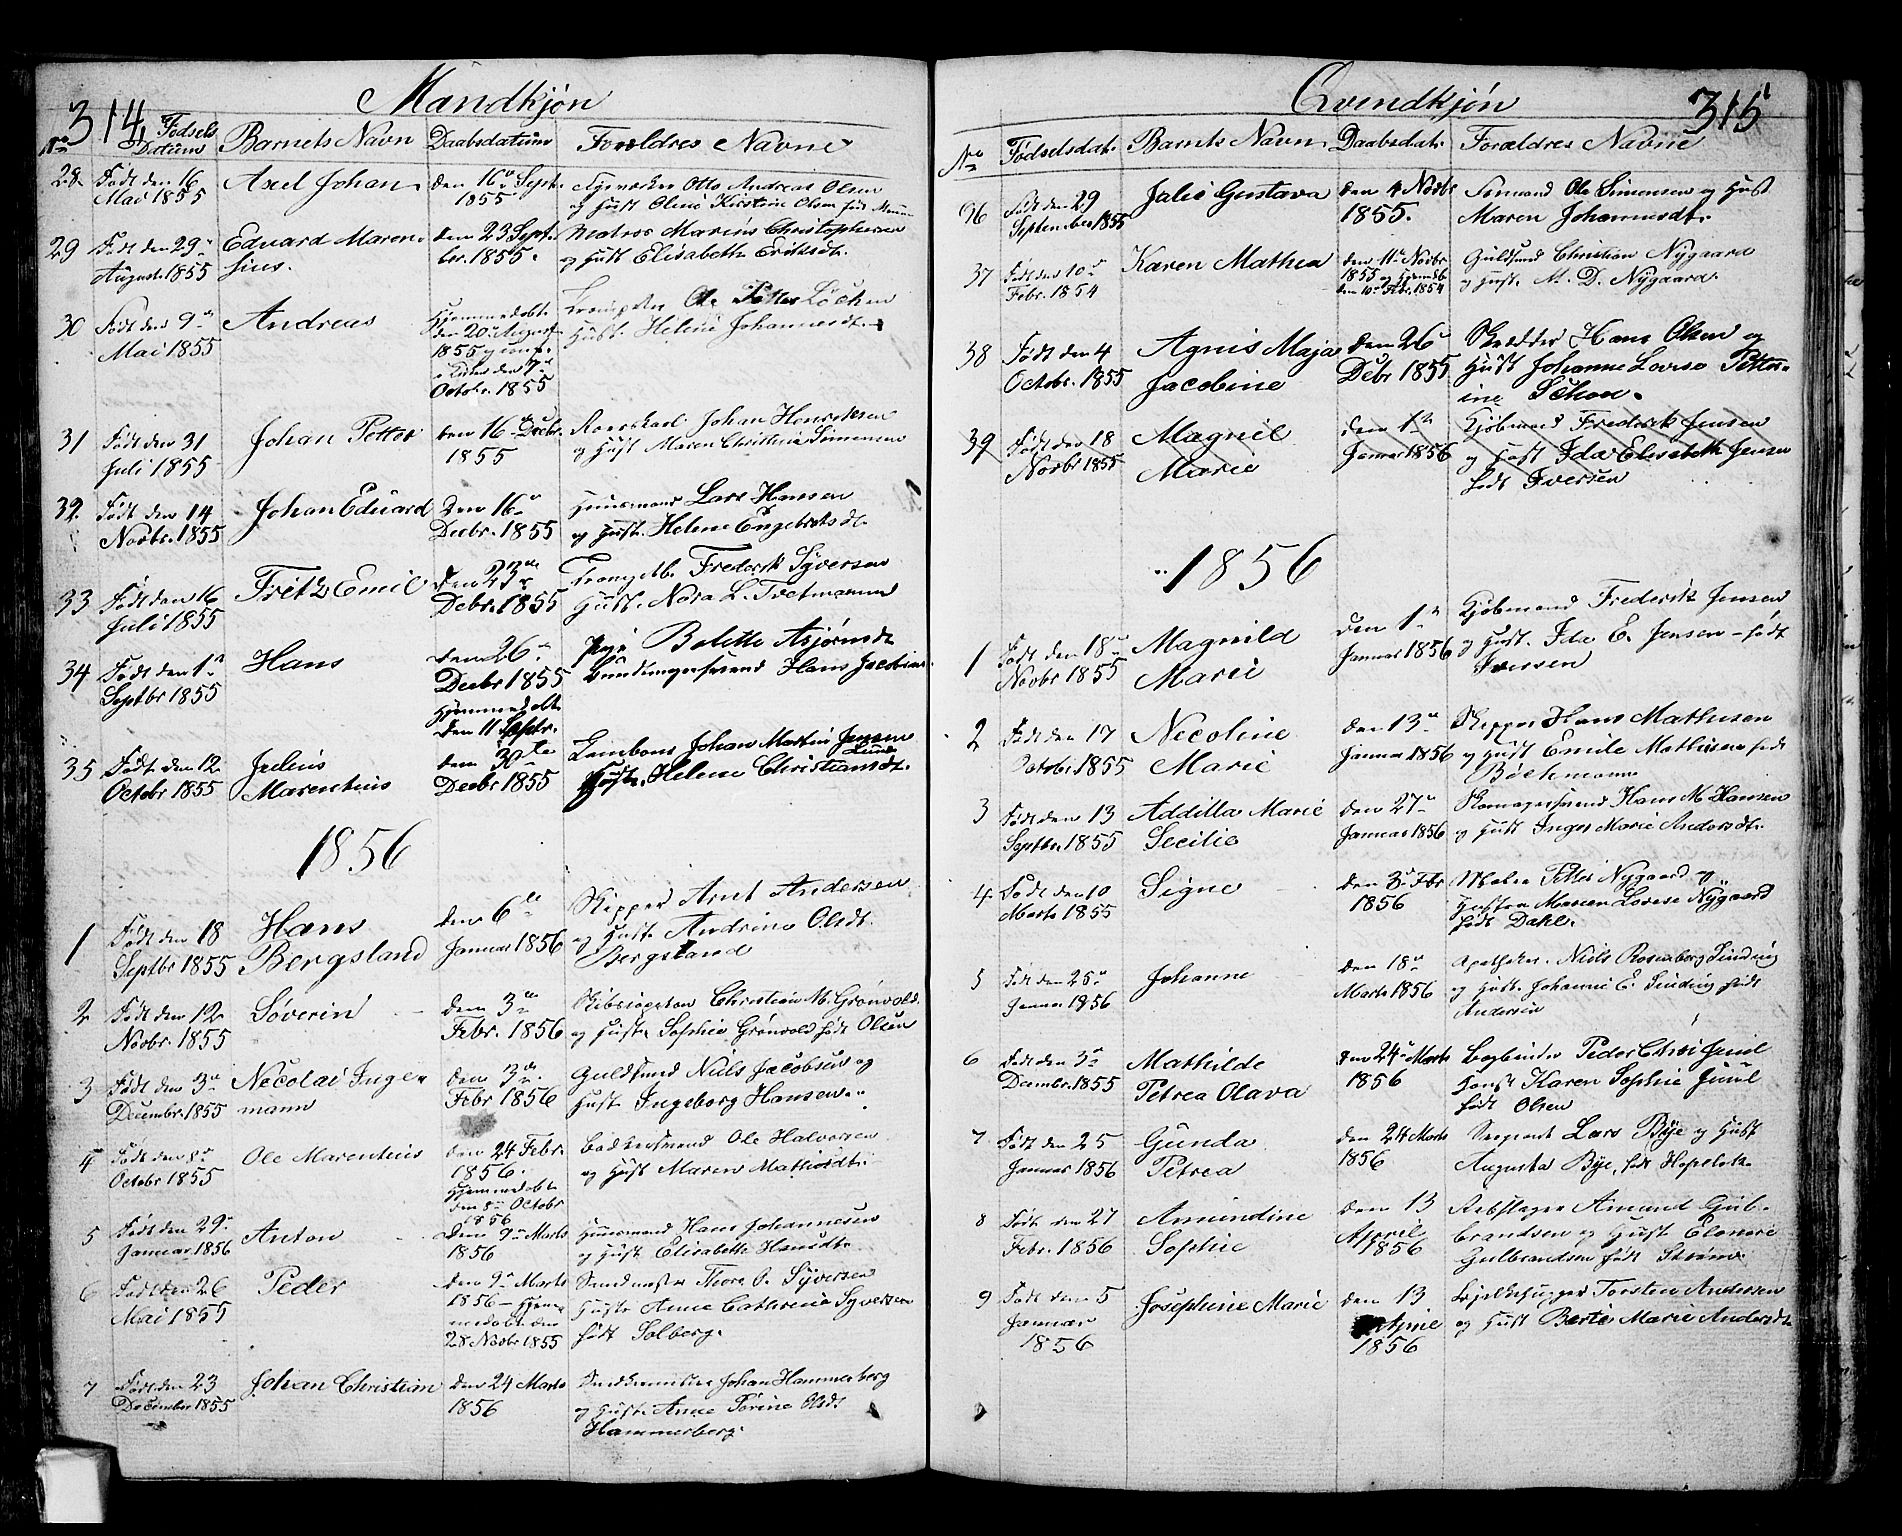 314.
Mandkjøn
No
Fødsels
Datum
Barnets Navn
Daabsdatum
Forældres Navne
28.
Født den 16
Mai 1855
Axel Johan
den 16de Sept.
1855
Otto Andreas Olsen
og Hust. Oline Kirstine Olsen født
29
Født den 29de
August 1855
Eduard Maren-
sius.
den 23 Sept.
br. 1855.
Matros Marius Christophersen
og Hust. Elisabeth Eriksdt.
30
Født den 9de
Mai 1855
Andreas
Hjemmedøbt
den 20de August
1855 og
i Kirken den 7de
Octobr. 1855
Ole Petter Løcken
Hust. Helene Johannesdt.
31
Født den 31
Juli 1855
Johan Petter
den 16de Decbr.
1855
Johan Henriksen
og Hust. Maren Christine Simensen
32.
Født den 14
Novbr. 1855
Johan Eduard
Den 16de
Decbr. 1855
Huusmand Lars Hansen
og Hust. Helene Engebretsdt.
33
Født den 16
Juli 1855
Fritz Emil
Den 23de
Debr. 1855
Frederik Syversen
Hust. Nora L. Tretmann
34
Født den 1de
Septbr 1855
Hans
Den 26de
Decbr 1855
Hjemmedøbt
den 11 Septr.
Pige Bolette Asjørnsdt.
Hans Jacobsen
35
Født den 12
Octobr 1855
Julius
Marentius
den 30te
Decbr 1855
Johan Martin Jensen
Lunde
Hust. Helene Christiansdt.
1856
1
Født den 18
Septbr 1855
Hans
Bergsland
den 6te
Januar 1856
Skipper Arnt Andersen
og Hust. Andrine Olsdt.
Bergsland
2
Født den 12
Novbr. 1855
Søverin
den 3de
Febr. 1856
Skibscapetain Christian M. Grønvold
og Hust. Sophie Grønvold født Olsen
3
Født den 3de
Decembr. 1855
Necolai Inge-
mann
den 3de
Febr 1856
Guldsmed Niels Jacobsen og
Hust. Ingeborg Hansen
4
Født den 8de
Octobr 1855
Ole Marentius
den 24 Febr.
1856.
Hjemmedøbt
den 8de Octobr
1856
Ole Halvorsen
og Hust Maren Mathisdt.
5
Født den 29de
Januar 1856
Anton
Den 9de Marts
1856
Huusmand Hans Johannesen
og Hust. Elisabeth Hansdt.
6
Født den 26
Mai 1855
Peder
den 9de Marts
1856 - Hjem-
medøbt den
28 Novbr 1855
Thore O. Syversen
Hust. Anne Cathrine Syversen
født Solberg.
7
Født den 23
December 1855
Johan Christian
den 24 Marts
1856
Johan Hammerberg
og Hust. Anne Torine Olsdt
Hammerberg.
Qvindkjøn
315
No
Fødselsdat.
Barnets Navn.
Daabsdat.
Forældres Navne
96
Født den 29
September 1855
Julie Gustava
den 4 Novbr
1855.
Sømand Ole Simensen og Hust
Maren Johannesdt.
37
Født den 10de
Febr. 1854
Karen Mathea
den 11te Novbr.
1855 og hjemdbt.
den 10de Febr. 1854
Guldsmd Christian Nygaard
og Hust. M. D. Nygaard.
38
Født den 4
Octobr. 1855
Agnis Maja
Jacobine
den 26de
Debr 1855
Skrædder Hans Olsen og
Hust Johanne Lovise Petter-
ine Schou.
39
Født den 18
Novbr 1855
Magnil
Marie
den 1te
Januar 1856
Kjøbmand Frederik Jensen
og Hust Ida Elisabeth Jensen
født Iversen
1856
1
Født den 18de
Novbr 1855
Magnild
Marie
den 1te
Januar 1856
Kjøbmand Frederik Jensen
og Hust. Ida E. Jensen - født
Iversen
2
Født den 17
Octobr. 1855
Necoline
Marie
den 13de
Januar 1856
Skipper Hans Mathisen
og Hust Emile Mathisen født
Bochmann
3
Født den 13
Septbr. 1855
Addilla Marie
Secilie
den 27de
Januar 1856
Skomagersvend Hans M. Hansen
og Hust Inger Marie Andersdt.
4.
Født den 10
Marts 1855
Signe
den 3de Febr
1856
Maler Petter Nygaard og
Hustru Maren Lovise Nygaard
født Dahl.
5
Født den 25de
Januar 1856
Johanne
den 18de
Marts 1856
Apotheker Niels Rosenberg Sinding
og Hust. Johanne E. Sinding født
Andersen
6
Født den 3de
Decmbr. 1855
Mathilde
Petrea Olava
den 24de Marts
1856
Bogbinder Peder Chri Juul
Hust Karen Sophie Juul
født Olsen
7
Født den 25
Januar 1856
Gunda
Petrea
den 24 Marts
1856
Sergeant Lars Bye og Hust
Augusta Bye, født
8
Født den 27
Febr. 1856
Amundine
Sophie
den 13
April
1856
Rebslager Amund Gul-
brandsen og Hust Elenore
Gulbrandsen født Strøm
9
Født den 5
Januar
1856
Josephine Marie
den 13
April
1856
Bjelkehugger Torsten Andersen
og Hust Berte Marie Andersdt.